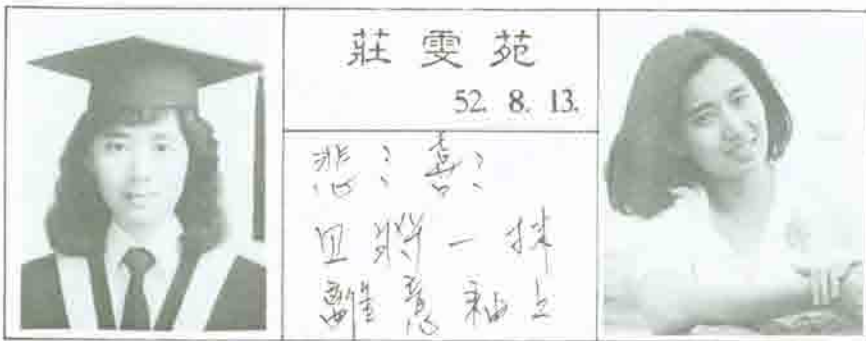 莊雯苑
52. 8. 13.
悲;喜;
且將一抹
離意釉上